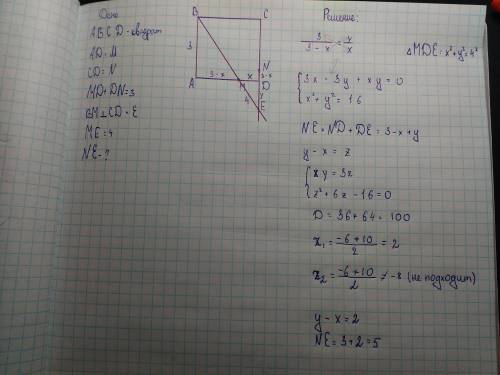 Дано
ABCD - квадрат
AD = M
CD = N
MD + DN = 3
BM ⊥ CD = E
ME = 4
NE - ?
B
C
3
N
3-x
x
3-x
A
M
D
y
4
E
Решение:
3/(3-x) = y/x
△MDE: x²+y²=4²
{3x - 3y + xy = 0
x² + y² = 16
NE = ND + DE = 3-x+y
y - x = z
{xy = 3z
z² + 6z - 16 = 0
D = 36 + 64 = 100
z₁ = (-6+10)/2 = 2
z₂ = (-6+10)/2 ≠ -8 (не подходит)
y - x = 2
NE = 3+2 = 5